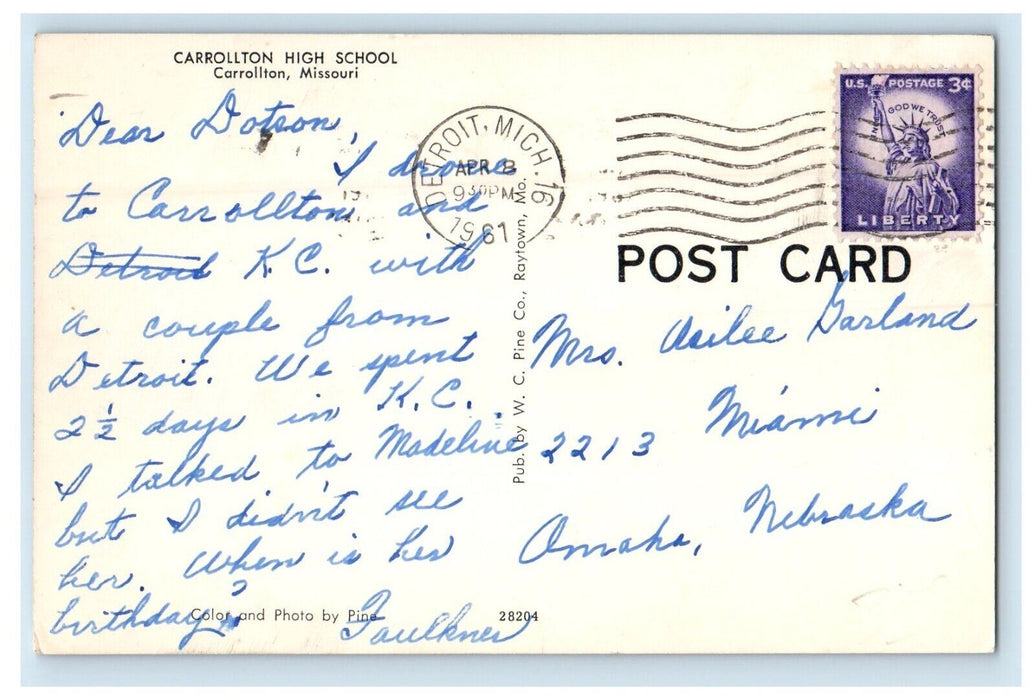 CARROLLTON HIGH SCHOOL
Carrollton, Missouri
Dear Dotson,
I drove
to Carrollton and
Detroit K.C. with
a couple from
Detroit. We spent
2 1/2 days in K.C..
I talked to Madeline
but I didn't see
her. When is her
birthday?
Faulkner
Color and Photo by Pine
28204
Pub. by W. C. Pine Co., Raytown, Mo.
DETROIT, MICH. 16
APR 3
930PM
1961
U.S. POSTAGE 3¢
IN GOD WE TRUST
LIBERTY
POST CARD
Mrs. Garland
2213 Miami
Omaha, Nebraska